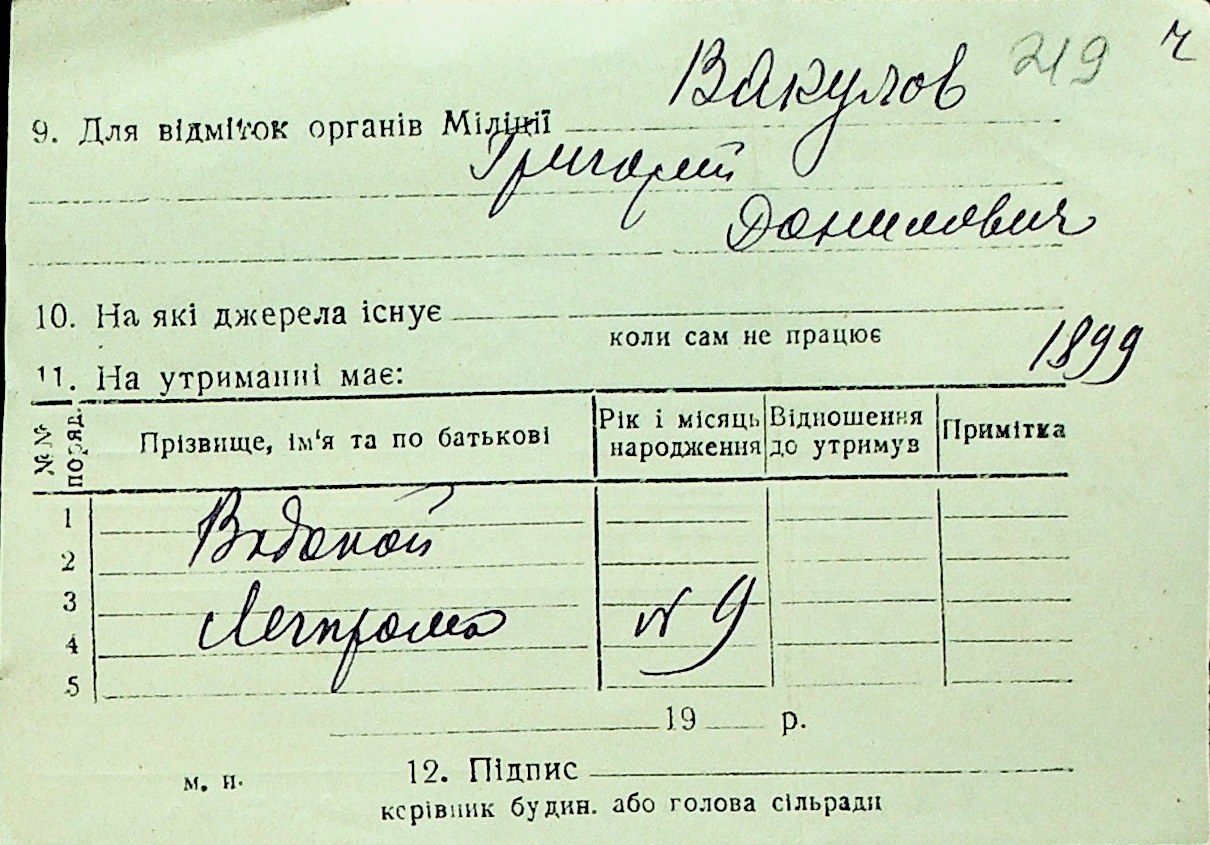 Вакулов 219 ч
9. Для відміток органів Міліції
Григорий
Данилович
10. На які джерела існує
коли сам не працює
1899
11. На утриманні має:
№№ поряд. Прізвище, ім‘я та по батькові Рік і місяць народження Відношення до утримув Примітка
1
2 Водокой
3
4 Легпрома № 9
5
19 р.
м. п. 12. Підпис
керівник будин. або голова сільради